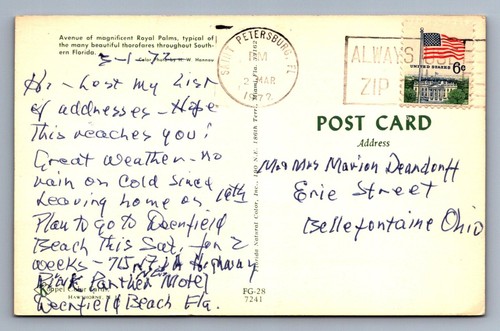 Avenue of magnificent Royal Palms, typical of
the many beautiful thorofares throughout South-
ern Florida.
Color Photo by W. Hannau
3-1-72
Hi - Lost my list
of addresses - Hope
This reaches you!
Great weather - no
rain or cold since
Leaving home on 16th
Plan to go to Deerfield
Beach This Sat, for 2
weeks - 715 Highway
Pink Panther Motel
Deerfield Beach Fla.
Koppel Color Cards
Hawthorne, N.J.
SAINT PETERSBURG, FL
PM
2 MAR
1972
ALWAYS USE
ZIP
UNITED STATES 6c
POST CARD
Address
Mr & Mrs Marion Deandorff
Erie Street
Bellefontaine Ohio
FG-28
7241
Florida Natural Color, Inc., 110 N.E. 186th Terr., Miami, Fla. 33162